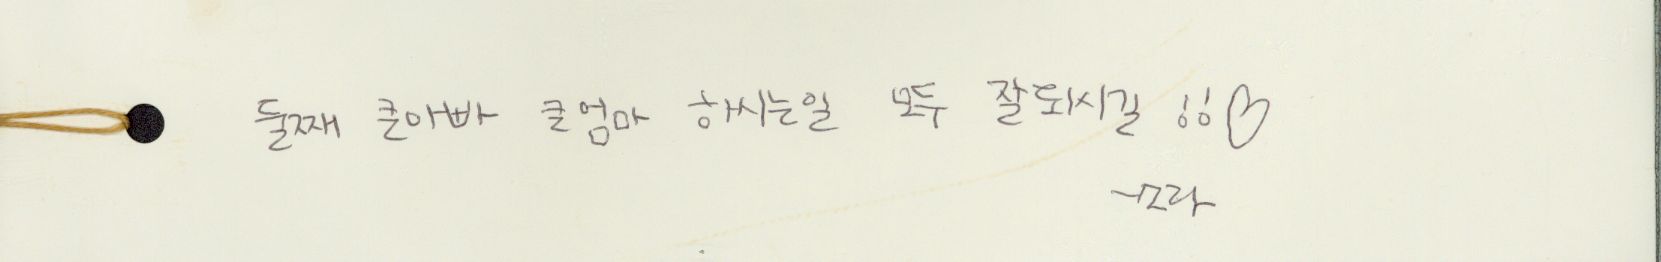 둘째 큰아빠 큰엄마 하시는일 모두 잘되시길 !!♡